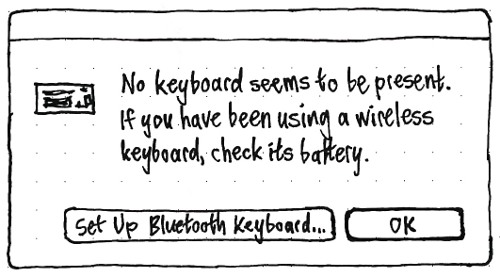 No keyboard seems to be present.
If you have been using a wireless
keyboard, check its battery.
Set Up Bluetooth Keyboard...
OK